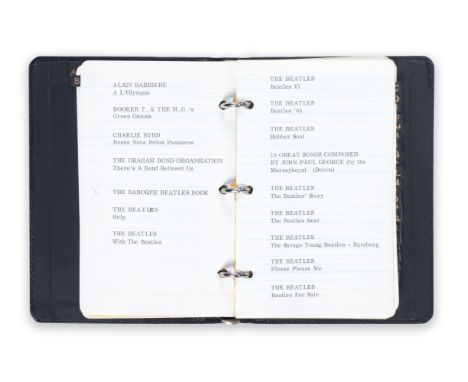 A
B
ALAIN BARRIERE
A L'Olympia
BOOKER T. & THE M.G.'s
Green Onions
CHARLIE BYRD
Bossa Nova Pelos Passaros
THE GRAHAM BOND ORGANISATION
There's A Bond Between Us
THE BAROQUE BEATLES BOOK
THE BEATLES
Help
THE BEATLES
With The Beatles
THE BEATLES
Beatles VI
THE BEATLES
Beatles '65
THE BEATLES
Rubber Soul
15 GREAT SONGS COMPOSED
BY JOHN PAUL GEORGE (by the
Merseyboys) (Decca)
THE BEATLES
The Beatles' Story
THE BEATLES
The Beatles Beat
THE BEATLES
The Savage Young Beatles - Hamburg
THE BEATLES
Please Please Me
THE BEATLES
Beatles For Sale.